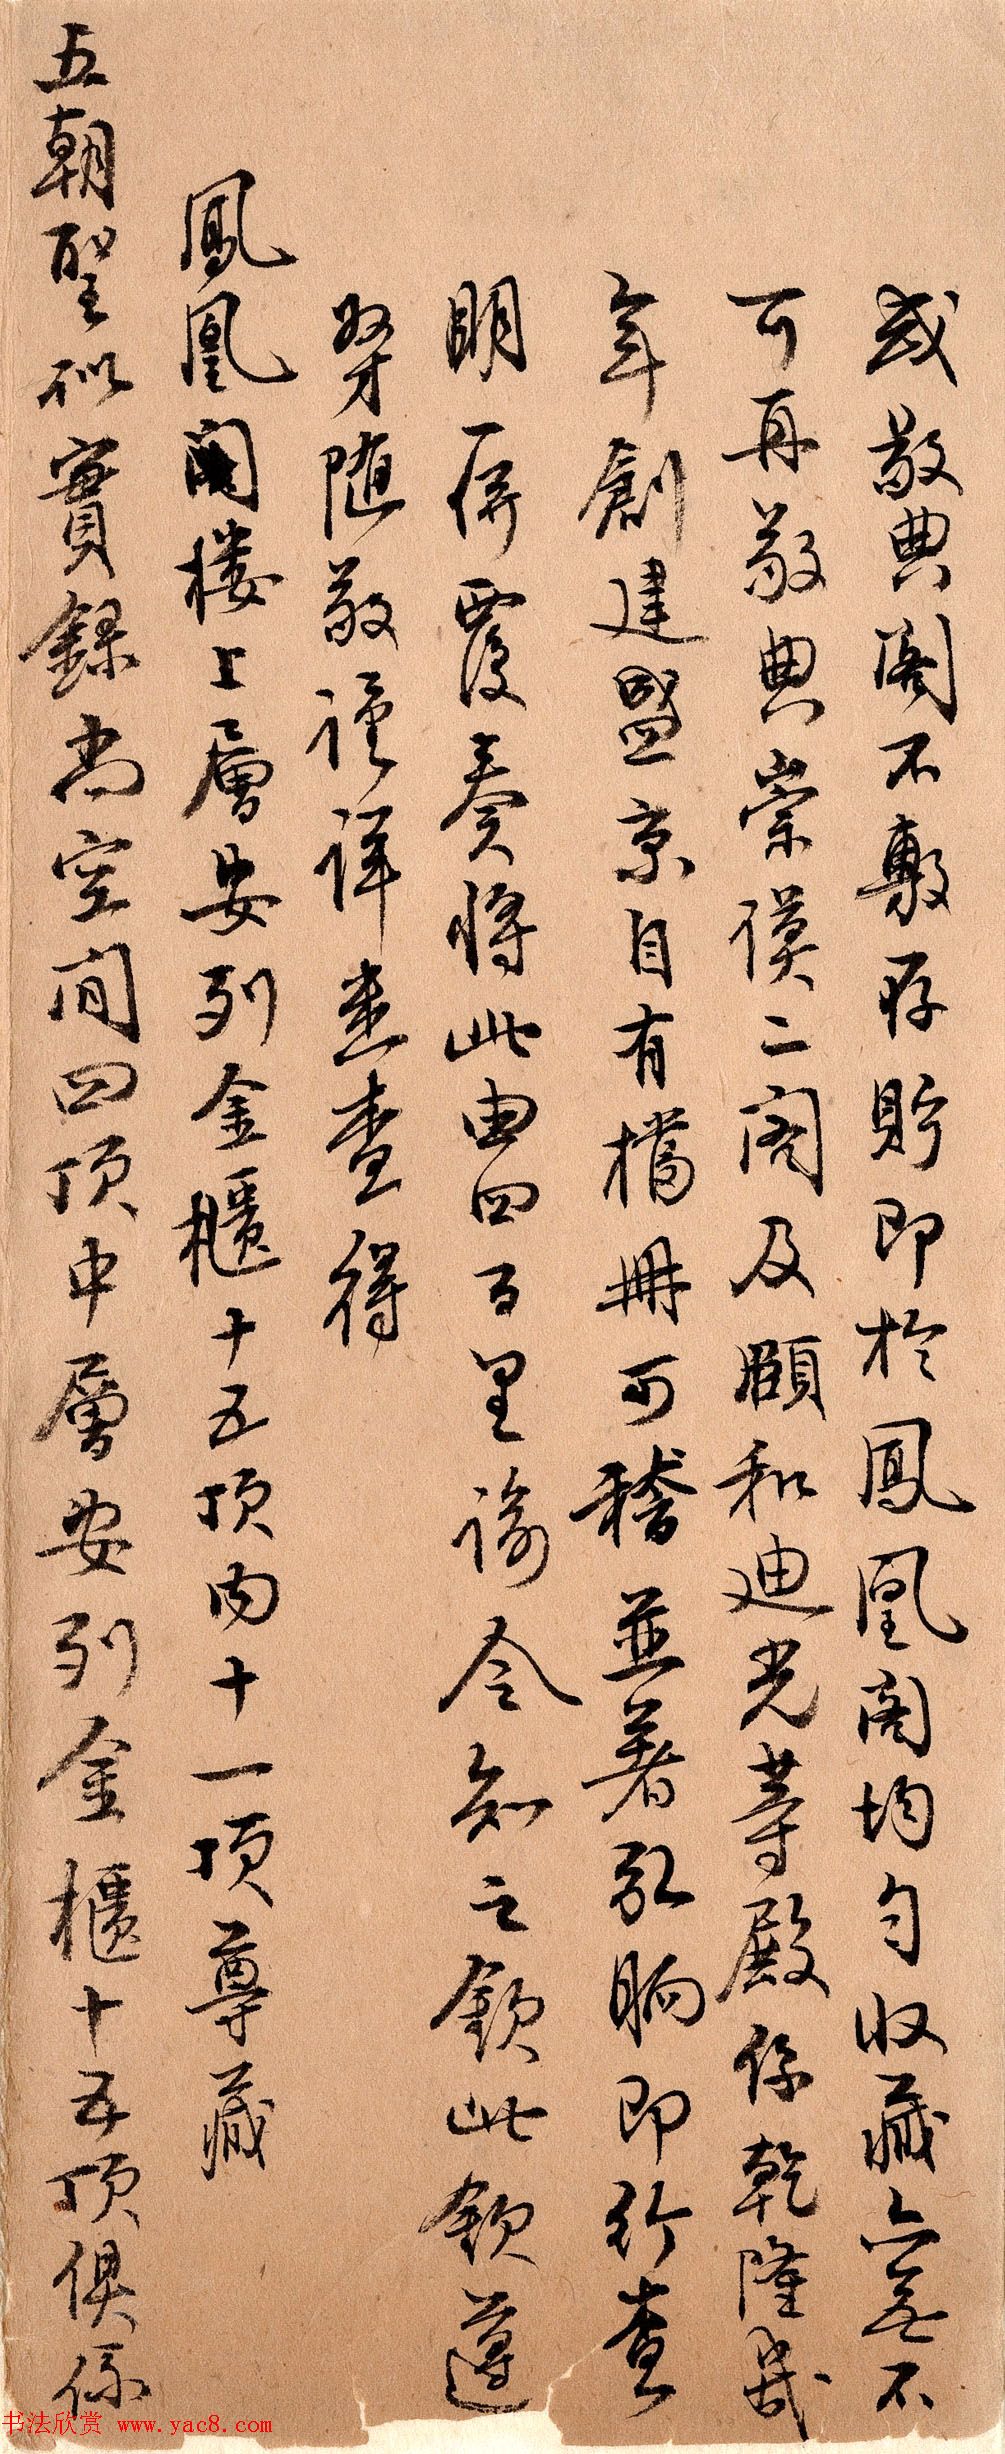 或敬典閣不敷存貯即於鳳凰閣均勻收藏亦無不
可再敬典崇謨二閣及頤和迪光等殿係乾隆幾
年創建盛京自有檔冊可稽並著弘晌即行查
明一併覆奏將此由四百里諭令知之欽此欽遵
弩随敬謹詳悉查得
鳳凰閣楼上層安列金櫃十五頂内十一頂尊藏
五朝聖訓實錄尚空閒四頂中層安列金櫃十五頂俱係
书法欣赏 www.yac8.com